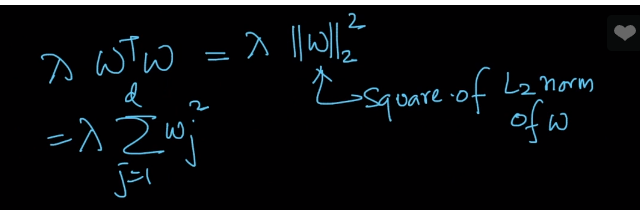 λ wᵀw = λ ||w||₂²
square of L2 norm
of w
= λ Σ_{j=1}^{d} w_j²